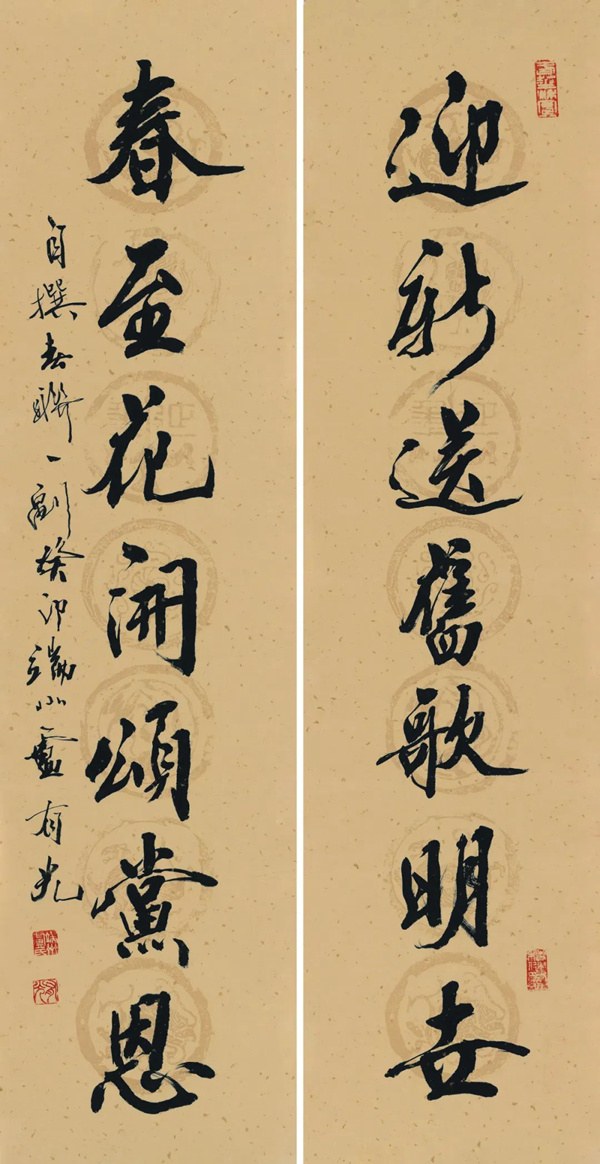 迎新送舊歌明世
春至花開頌黨恩
自撰春聯一副癸卯端州盧有光